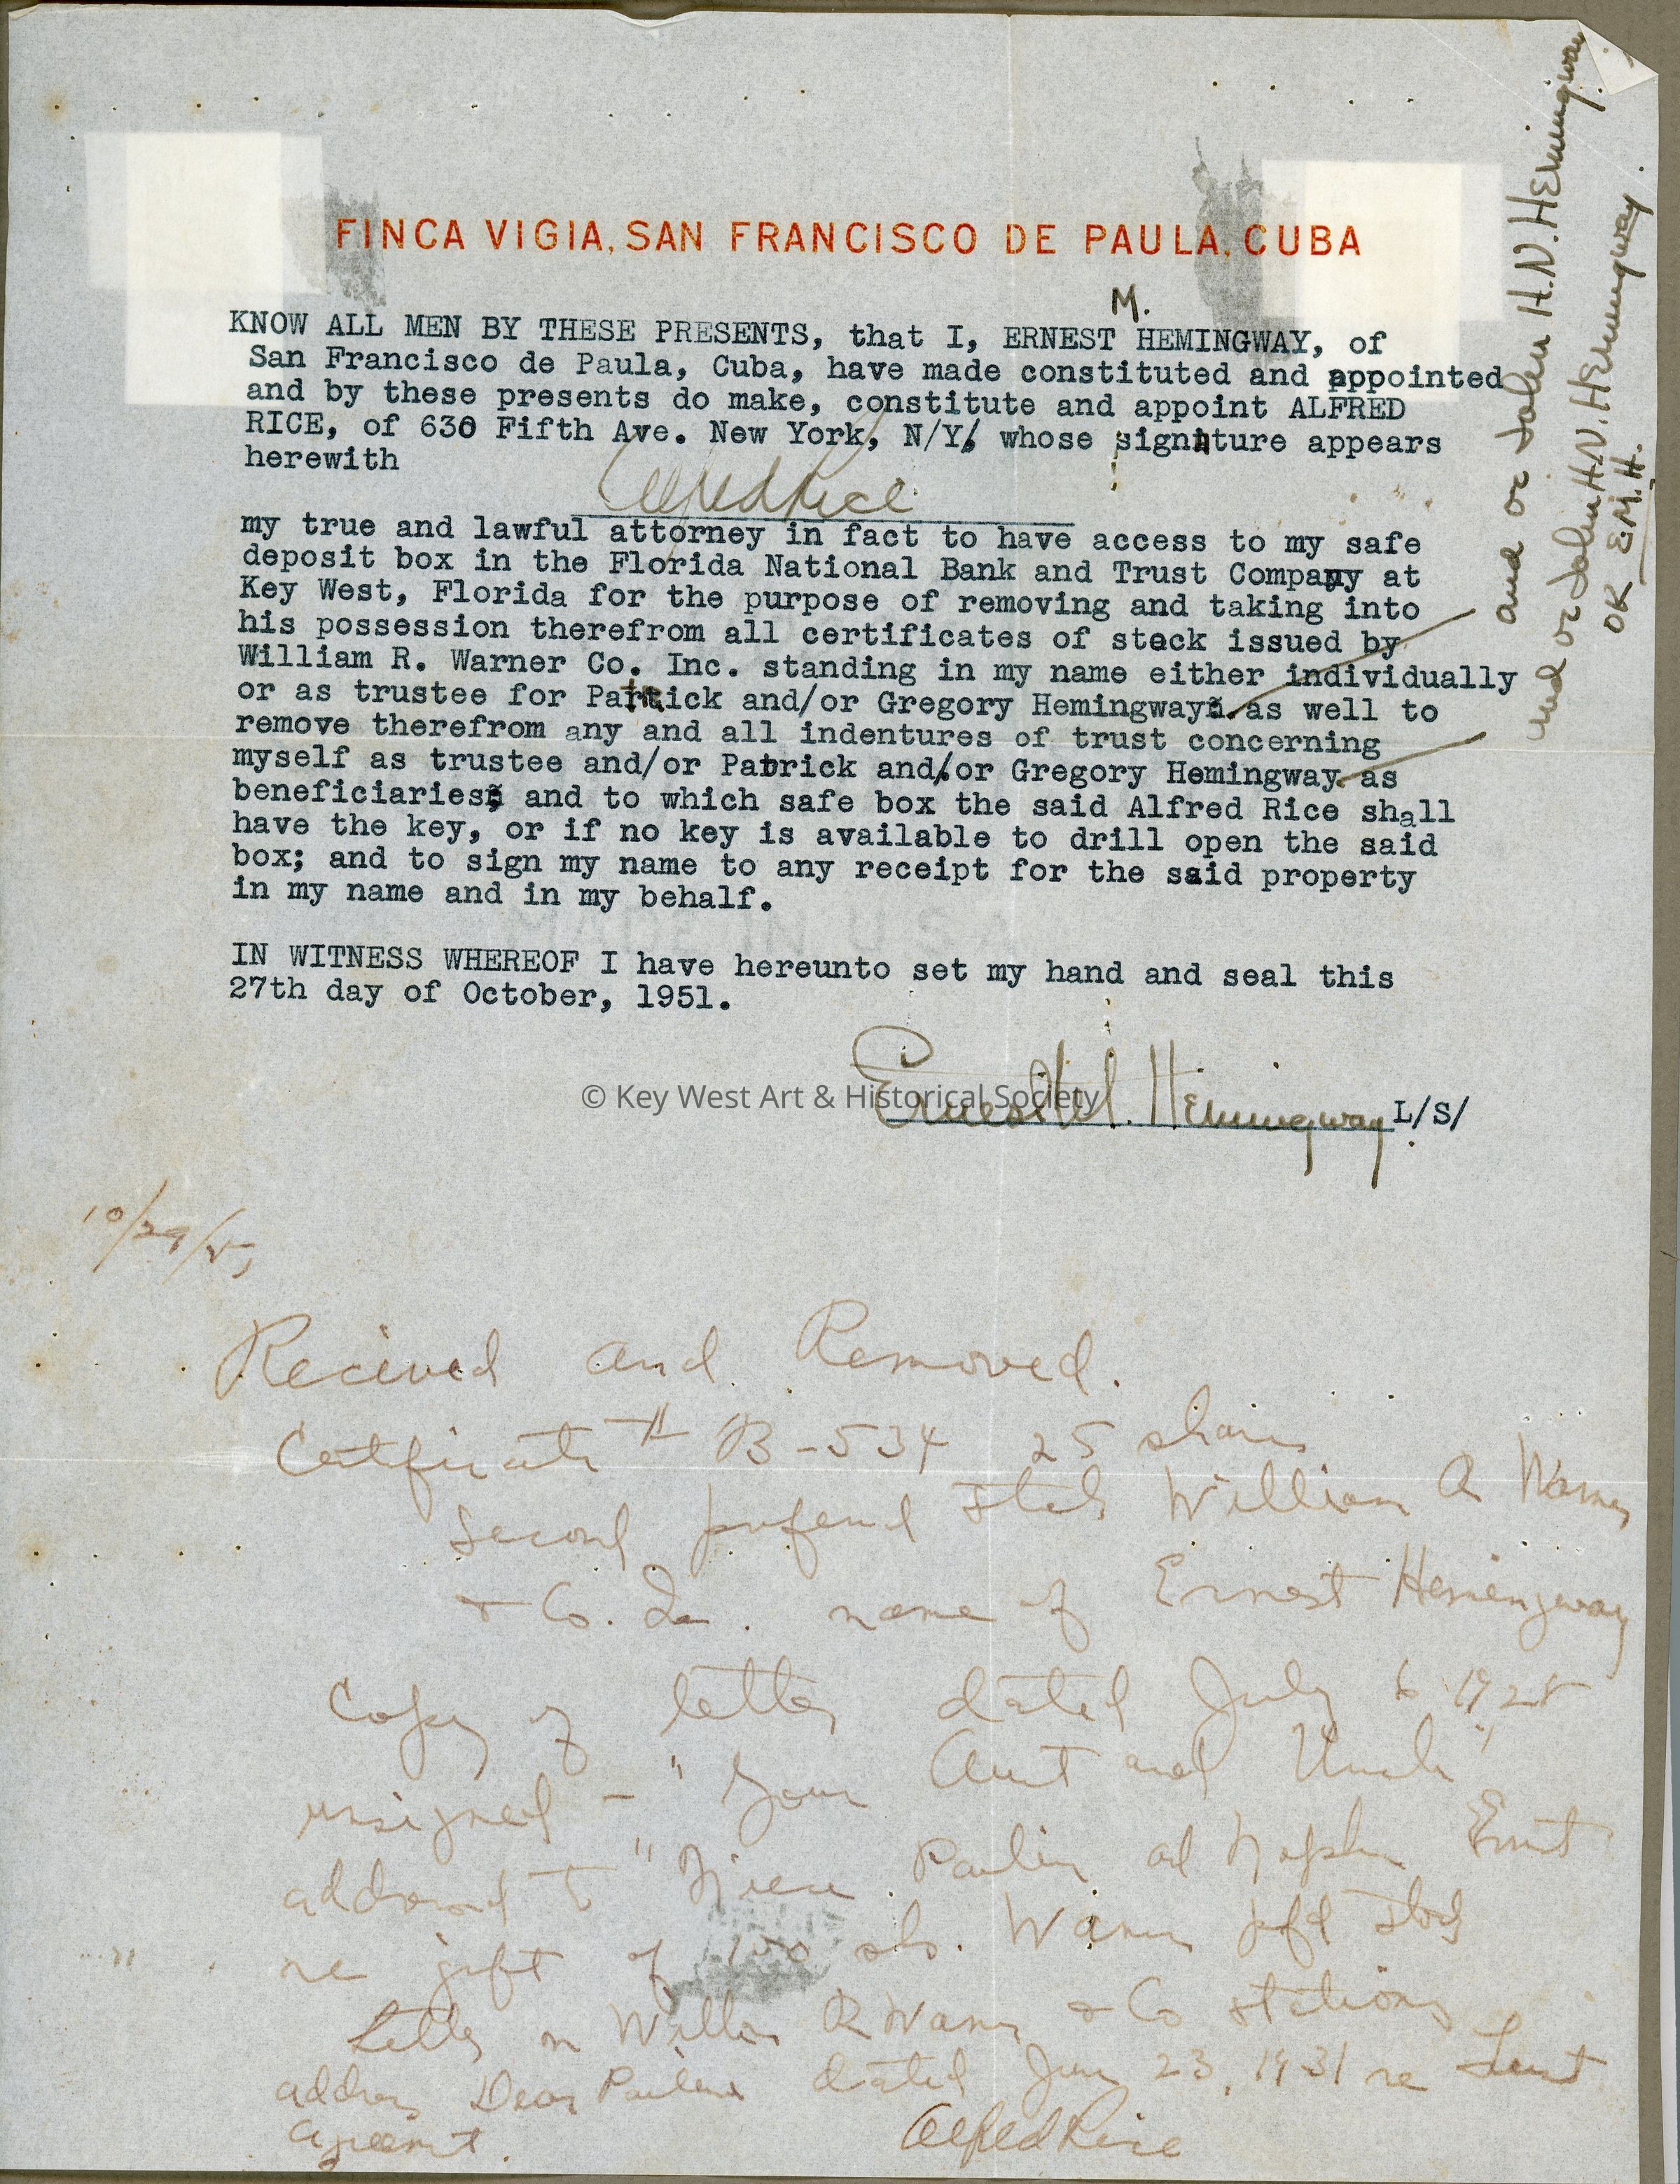 FINCA VIGIA, SAN FRANCISCO DE PAULA, CUBA
M.
KNOW ALL MEN BY THESE PRESENTS, that I, ERNEST HEMINGWAY, of
San Francisco de Paula, Cuba, have made constituted and appointed
and by these presents do make, constitute and appoint ALFRED
RICE, of 630 Fifth Ave. New York, N/Y/ whose signature appears
herewith
Alfred Rice
my true and lawful attorney in fact to have access to my safe
deposit box in the Florida National Bank and Trust Company at
Key West, Florida for the purpose of removing and taking into
his possession therefrom all certificates of stock issued by
William R. Warner Co. Inc. standing in my name either individually
or as trustee for Patrick and/or Gregory Hemingway. as well to
remove therefrom any and all indentures of trust concerning
myself as trustee and/or Patrick and/or Gregory Hemingway as
beneficiaries; and to which safe box the said Alfred Rice shall
have the key, or if no key is available to drill open the said
box; and to sign my name to any receipt for the said property
in my name and in my behalf.
IN WITNESS WHEREOF I have hereunto set my hand and seal this
27th day of October, 1951.
Ernest M. Hemingway L/S/
and or John H.N. Hemingway
and or John H.N. Hemingway.
OK E.M.H.
© Key West Art & Historical Society
10/29/51
Recieved and Removed.
Certificate # B-534 25 shares
Second preferred Stock William R Warner
& Co. Inc. name of Ernest Hemingway
Copy of letter dated July 6 1928
unsigned - "Your Aunt and Uncle"
addressed to "Niece Pauline and Nephew Ernest
re gift of 100 shs. Warner pfd Stock
Letter on William R Warner & Co stationery
address Dear Pauline dated Jan 23, 1931 re Trust
Agreement.
Alfred Rice